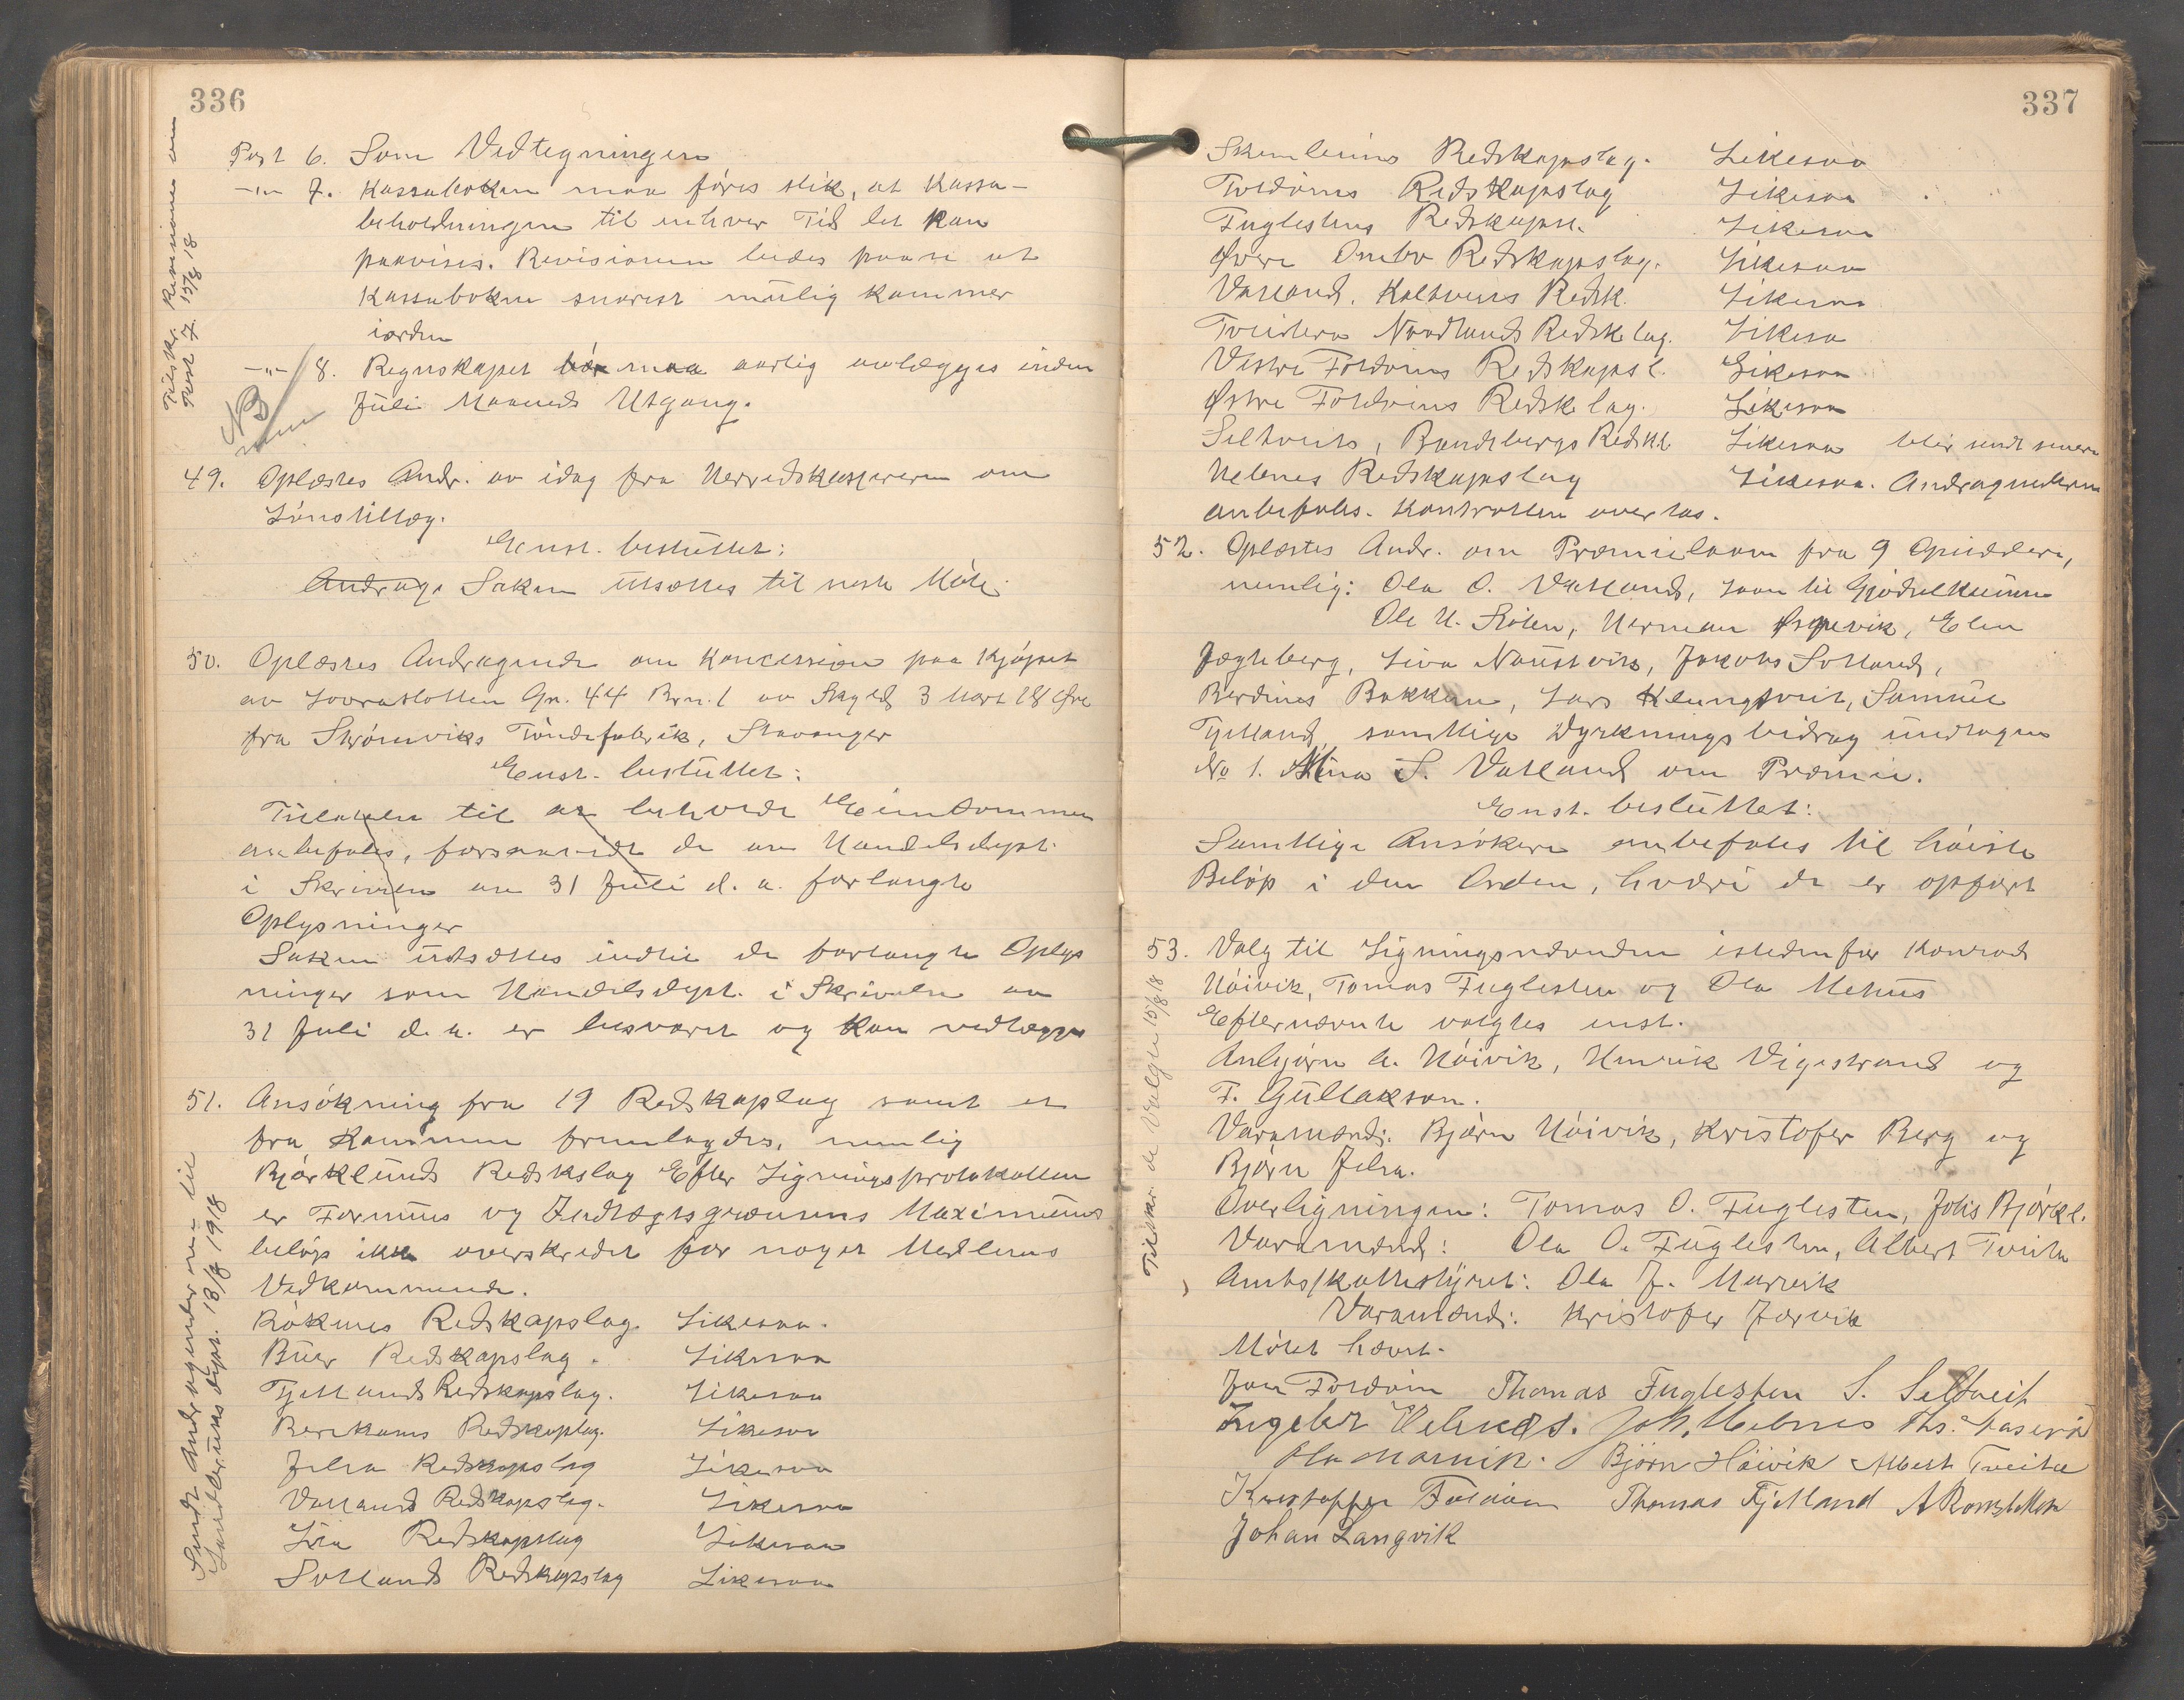 336
Post 6. Som Vedtegningen
-"- 7. Kassaboken maa føres slik, at Kassa-
beholdningen til enhver Tid let kan
paavises. Revisionen bedes paase at
Kassaboken snarest mulig kommer
iorden
-"- 8. Regnskapet bør maa aarlig avlægges inden
Juli Maaneds Utgang.
NB
Tilskr. Revisionen om
Post 7. 15/8 18
49. Oplæstes Andr. av idag fra Herredskassereren om
Lønstillæg.
Enst. besluttet:
Andrage Saken utsættes til neste Møte.
50. Oplæstes Andragende om Koncession paa Kjøpet
av Lovraslotten Gn. 44 Brn. 1 av Skyld 3 Mark 18 Øre
fra Strømviks Tøndefabrik, Stavanger
Enst. besluttet:
Tilladelse til at beholde Eiendommen
anbefales, forsaavidt de av Handelsdept.
i Skrivelse av 31 Juli d. a. forlangte
Oplysninger
Saken utsættes indtil de forlangte Oplys
ninger som Handelsdept. i Skrivelse av
31 Juli d. a. er besvaret og kan vedlægges
51. Ansøkning fra 19 Redskaplag samt et
fra Kommunen fremlagdes, nemlig
Bjørklunds Redskslag Efter Ligningsprotokollen
er Formues og Indtægtsgrænsens Maximums
beløp ikke overskredet for noget Medlems
Vedkommende.
Røknes Redskapslag. Likesaa.
Buer Redskapslag. Likesaa
Tjellands Redskapslag. Likesaa
Berekams Redskaplag. Likesaa
Jelsa Redskapslag Likesaa
Vatlands Redskapslag. Likesaa
Lia Redskapslag Likesaa
Sollands Redskapslag Likesaa
Sendt Andragender nei til
Landbruksdept. 13/8 1918
337
Redskapslag. Likesaa
Foldøens Redskapslag Likesaa
Fuglestens Redskapsl. Likesaa
Øvre Ombo Redskapslag. Likesaa
Vatland, Kaltveits Redsk. Likesaa
Tveiteras Nordlands Redsk. lag. Likesaa
Vestre Foldøens Redskapsl. Likesaa
Østre Foldøens Redsk. lag. Likesaa
Seltveits, Bandebergs Redskl Likesaa blir sendt senere
Helenes Redskapslag Likesaa. Andragenderne
anbefales. Kontrollen overtas.
52. Oplæstes Andr. om Præmielaan fra 9 Opsiddere,
nemlig: Ola O. Vatland, Laan til Gjødselkum
Ole H. Holen, Herman Espevik, Elen
Jægteberg, Liva Naustvik, Jakobs Solland,
Berdines Bakken, Lars Klungtveit, Samuel
Tjelland, samtlige Dyrkningsbidrag undtagen
No 1. Alina S. Vatland om Præmie.
Enst. besluttet:
Samtlige Ansøkere anbefales til høieste
Beløp i den Orden, hvori de er opført
53. Valg til Ligningsnævnden istedenfor Konrad
Høivik, Tomas Fuglesten og Ola Mehus
Efternævnte valgtes enst.
Anbjørn A. Høivik, Henrik Vigestrand og
F. Gullakson.
Varamænd: Bjørn Høivik, Kristofer Berg og
Bjørn Jelsa.
Overligningen: Tomas O. Fuglesten, Johs Bjørkl.
Varamænd: Ola O. Fuglesten, Albert Tveita
Amtsskattestyret: Ola J. Marvik
Varamænd: Kristofer Jørvik
Møtet hævet.
Tilskr. de Valgte 15/8 18
Jon Foldøen Thomas Fuglesten S. Seltveit
Ingebr Helenes. Joh. Helenes Ths. Vaserå
Ola Marvik. Bjørn Høivik Albert Tveita
Kristoffer Foldøen Thomas Tjelland
Johan Langvik